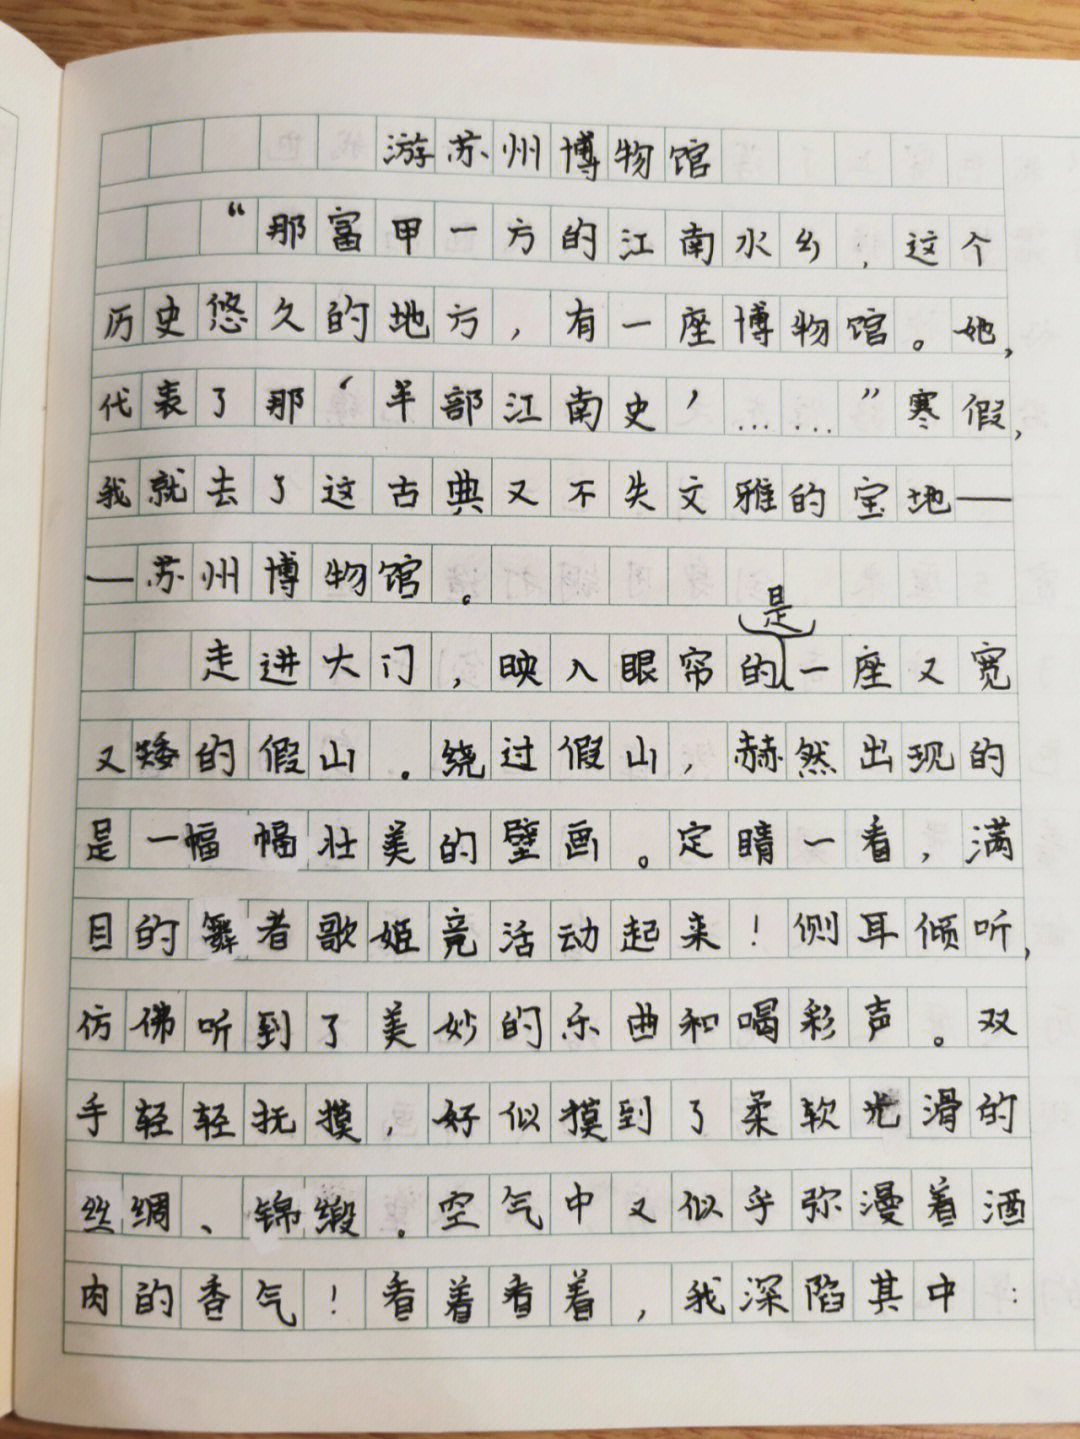 游苏州博物馆
“那富甲一方的江南水乡，这个
历史悠久的地方，有一座博物馆。她，
代表了那‘半部江南史’……”寒假，
我就去了这古典又不失文雅的宝地—
—苏州博物馆。
是
走进大门，映入眼帘的一座又宽
又矮的假山。绕过假山，赫然出现的
是一幅幅壮美的壁画。定睛一看，满
目的舞者歌姬竟活动起来！侧耳倾听，
仿佛听到了美妙的乐曲和喝彩声。双
手轻轻抚摸，好似摸到了柔软光滑的
丝绸、锦缎。空气中又似乎弥漫着酒
肉的香气！看着看着，我深陷其中：